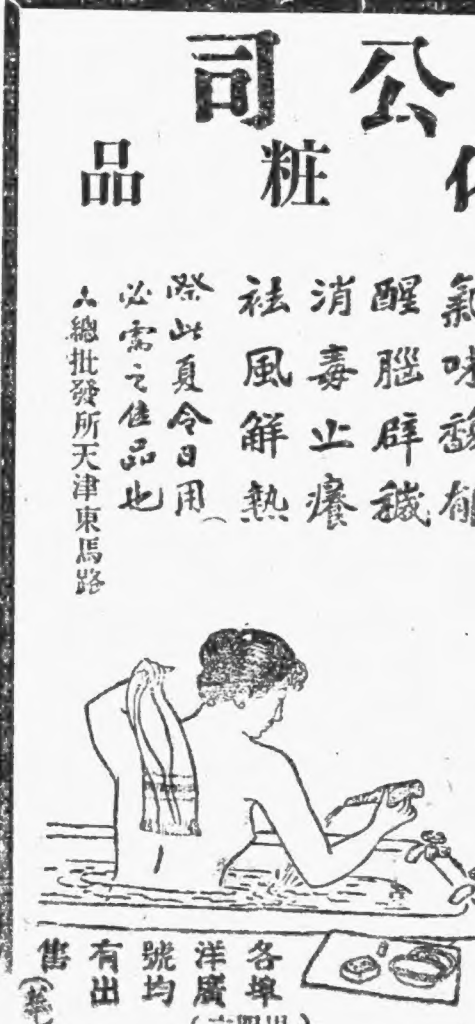 公司
化粧品
氣味馥郁
醒腦辟穢
消毒止癢
袪風觧熱
際此夏令日用
必需之佳品也
▲總批發所天津東馬路
各埠
洋廣
號均
有出
售
(華)